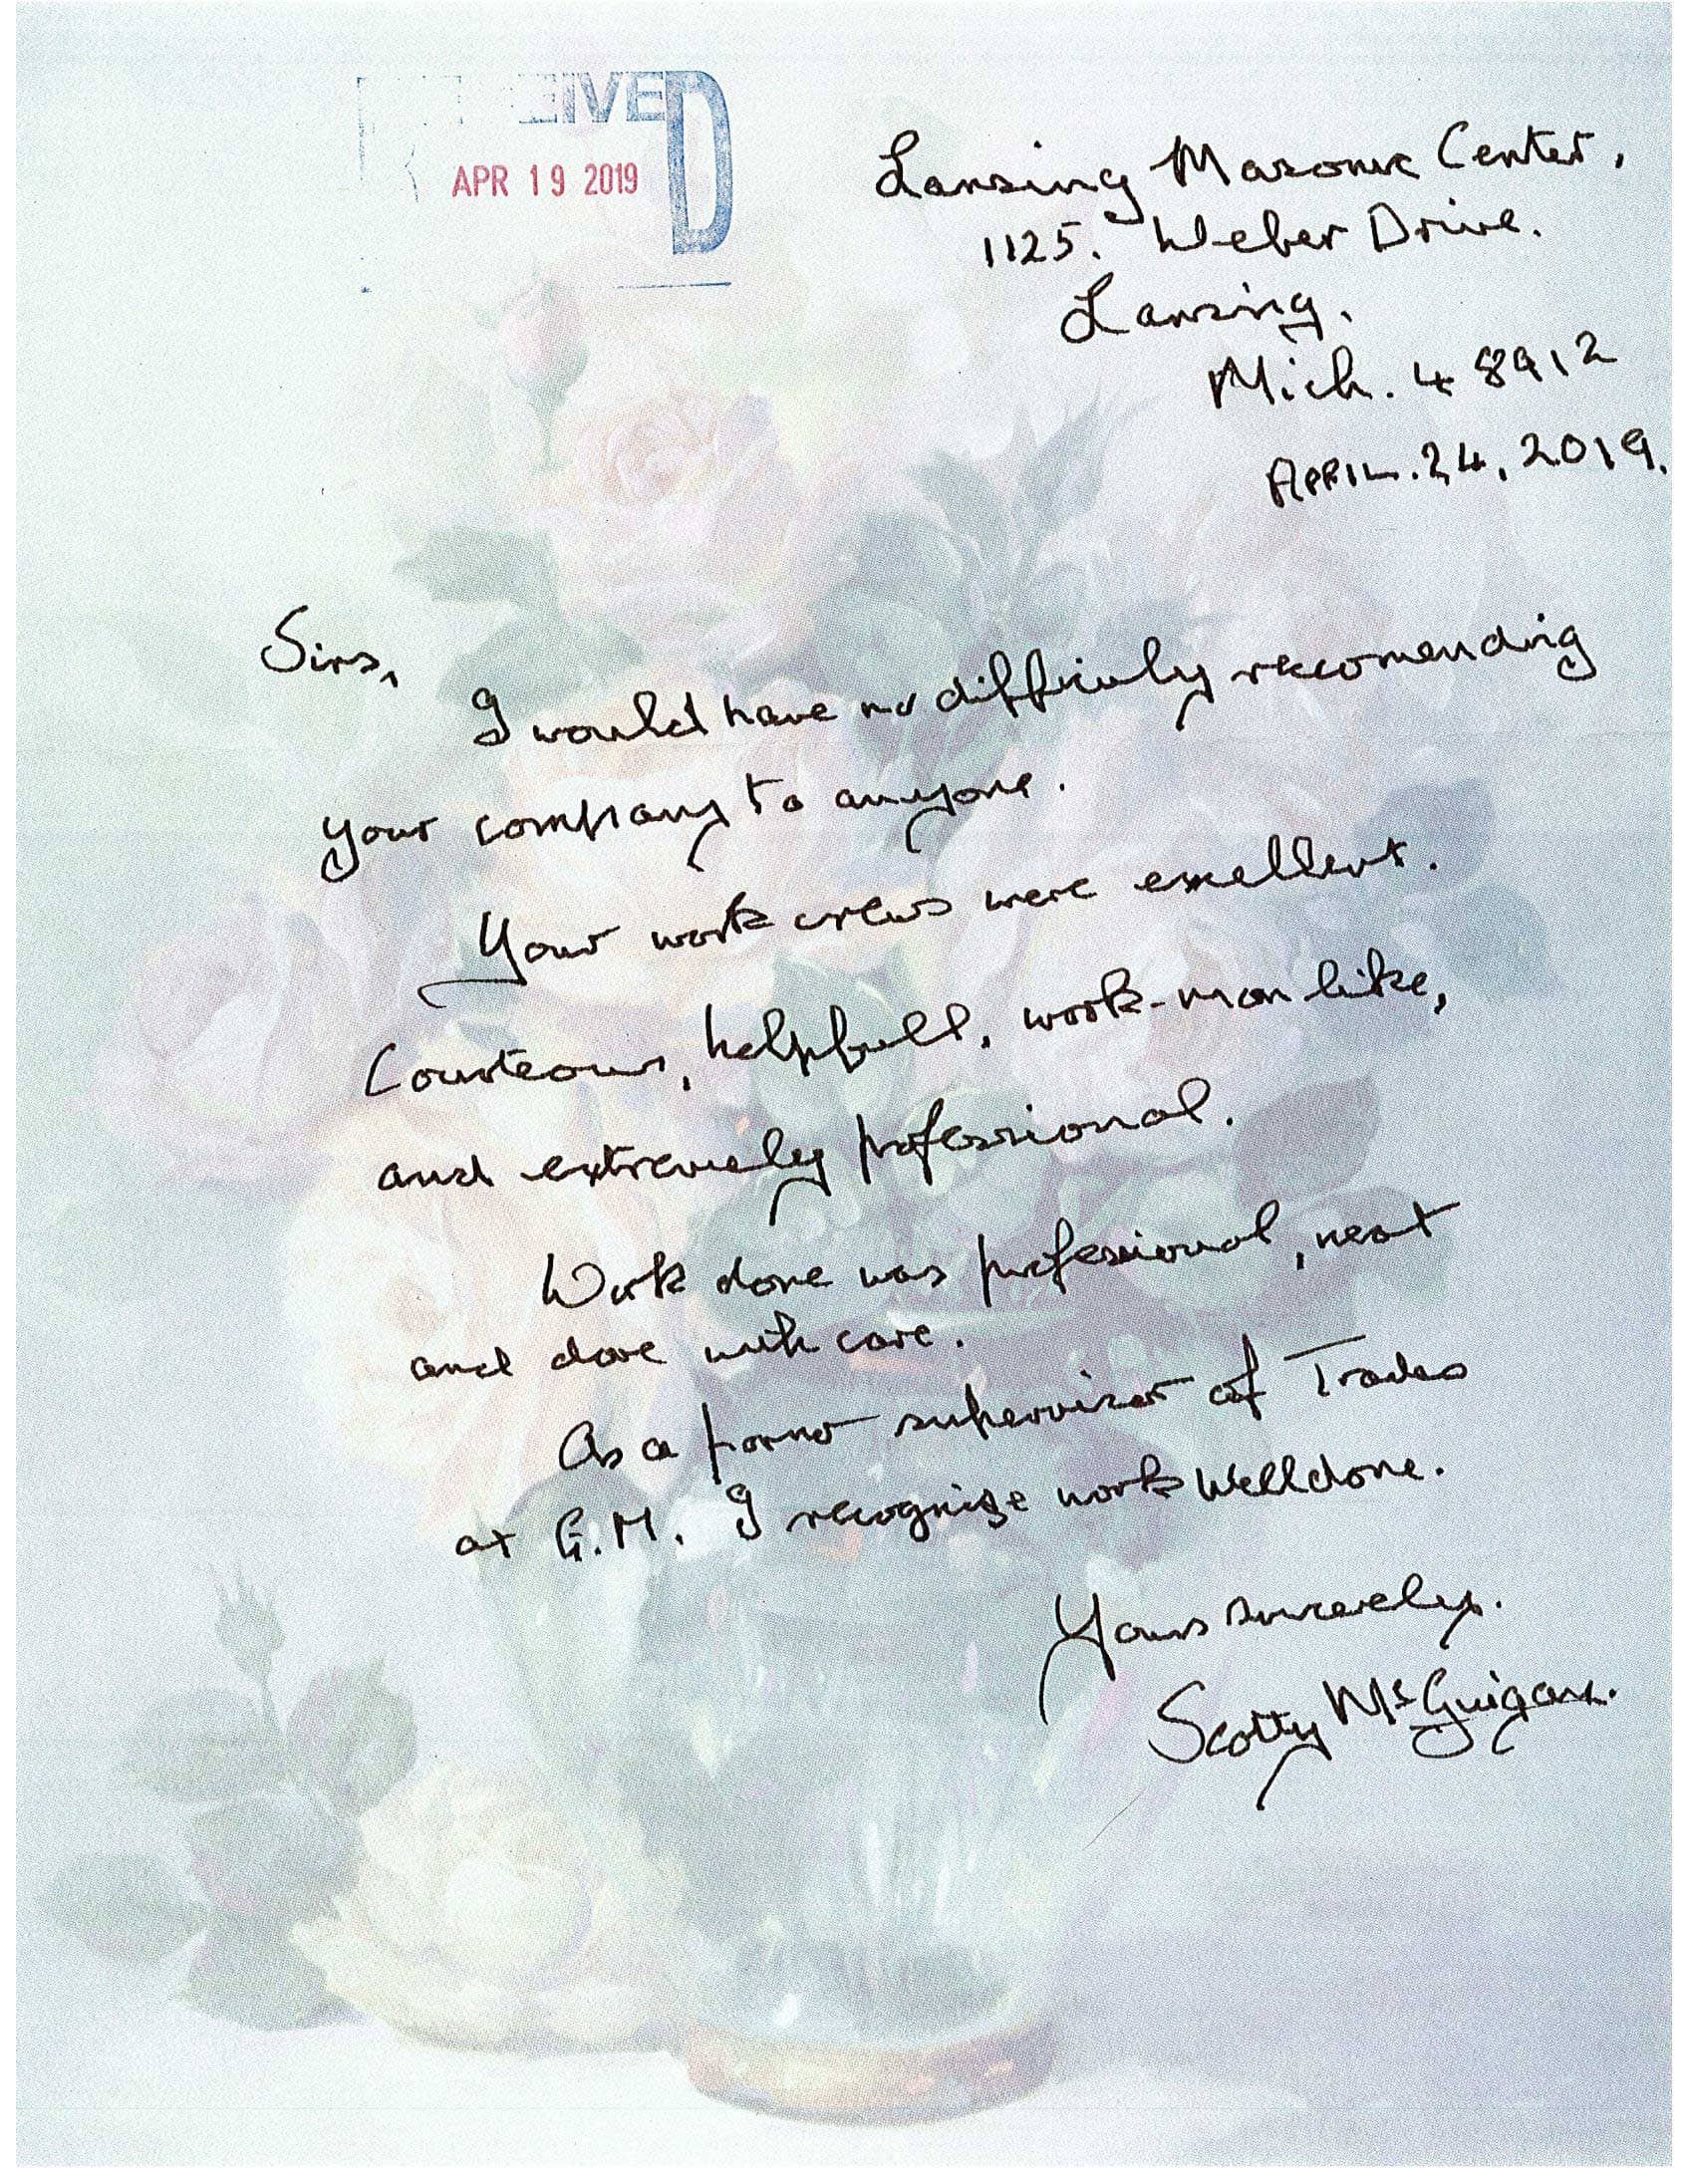 RECEIVED
APR 19 2019
Lansing Masonic Center,
1125. Weber Drive.
Lansing.
Mich. 48912
APRIL.24, 2019.
Sirs,
I would have no difficuly recomending
your company to anyone.
Your work crews were excellent.
Courteous, helpfull, work-man like,
and extremely professional.
Work done was professional, neat
and done with care.
As a former supervisor of Trades
at G.M. I recognize work Welldone.
Yours sincerely.
Scotty McGuigan.